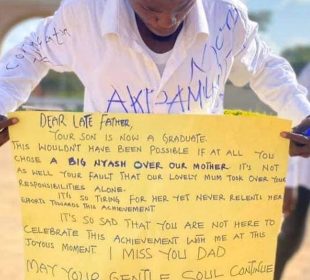 Congratulatn
AKPAMU
DEAR LATE FATHER,
YOUR SON IS NOW A GRADUATE.
THIS WOULDN'T HAVE BEEN POSSIBLE IF AT ALL YOU
CHOSE A BIG NYASH OVER OUR MOTHER. IT'S NOT
AS WELL YOUR FAULT THAT OUR LOVELY MUM TOOK OVER YOUR
RESPONSIBILITIES ALONE.
IT'S SO TIRING FOR HER YET NEVER RELENT HER
EFFORTS TOWARDS THIS ACHIEVEMENT
IT'S SO SAD THAT YOU ARE NOT HERE TO
CELEBRATE THIS ACHIEVEMENT WITH ME AT THIS
JOYOUS MOMENT. I MISS YOU DAD
MAY YOUR GENTLE SOUL CONTINUE